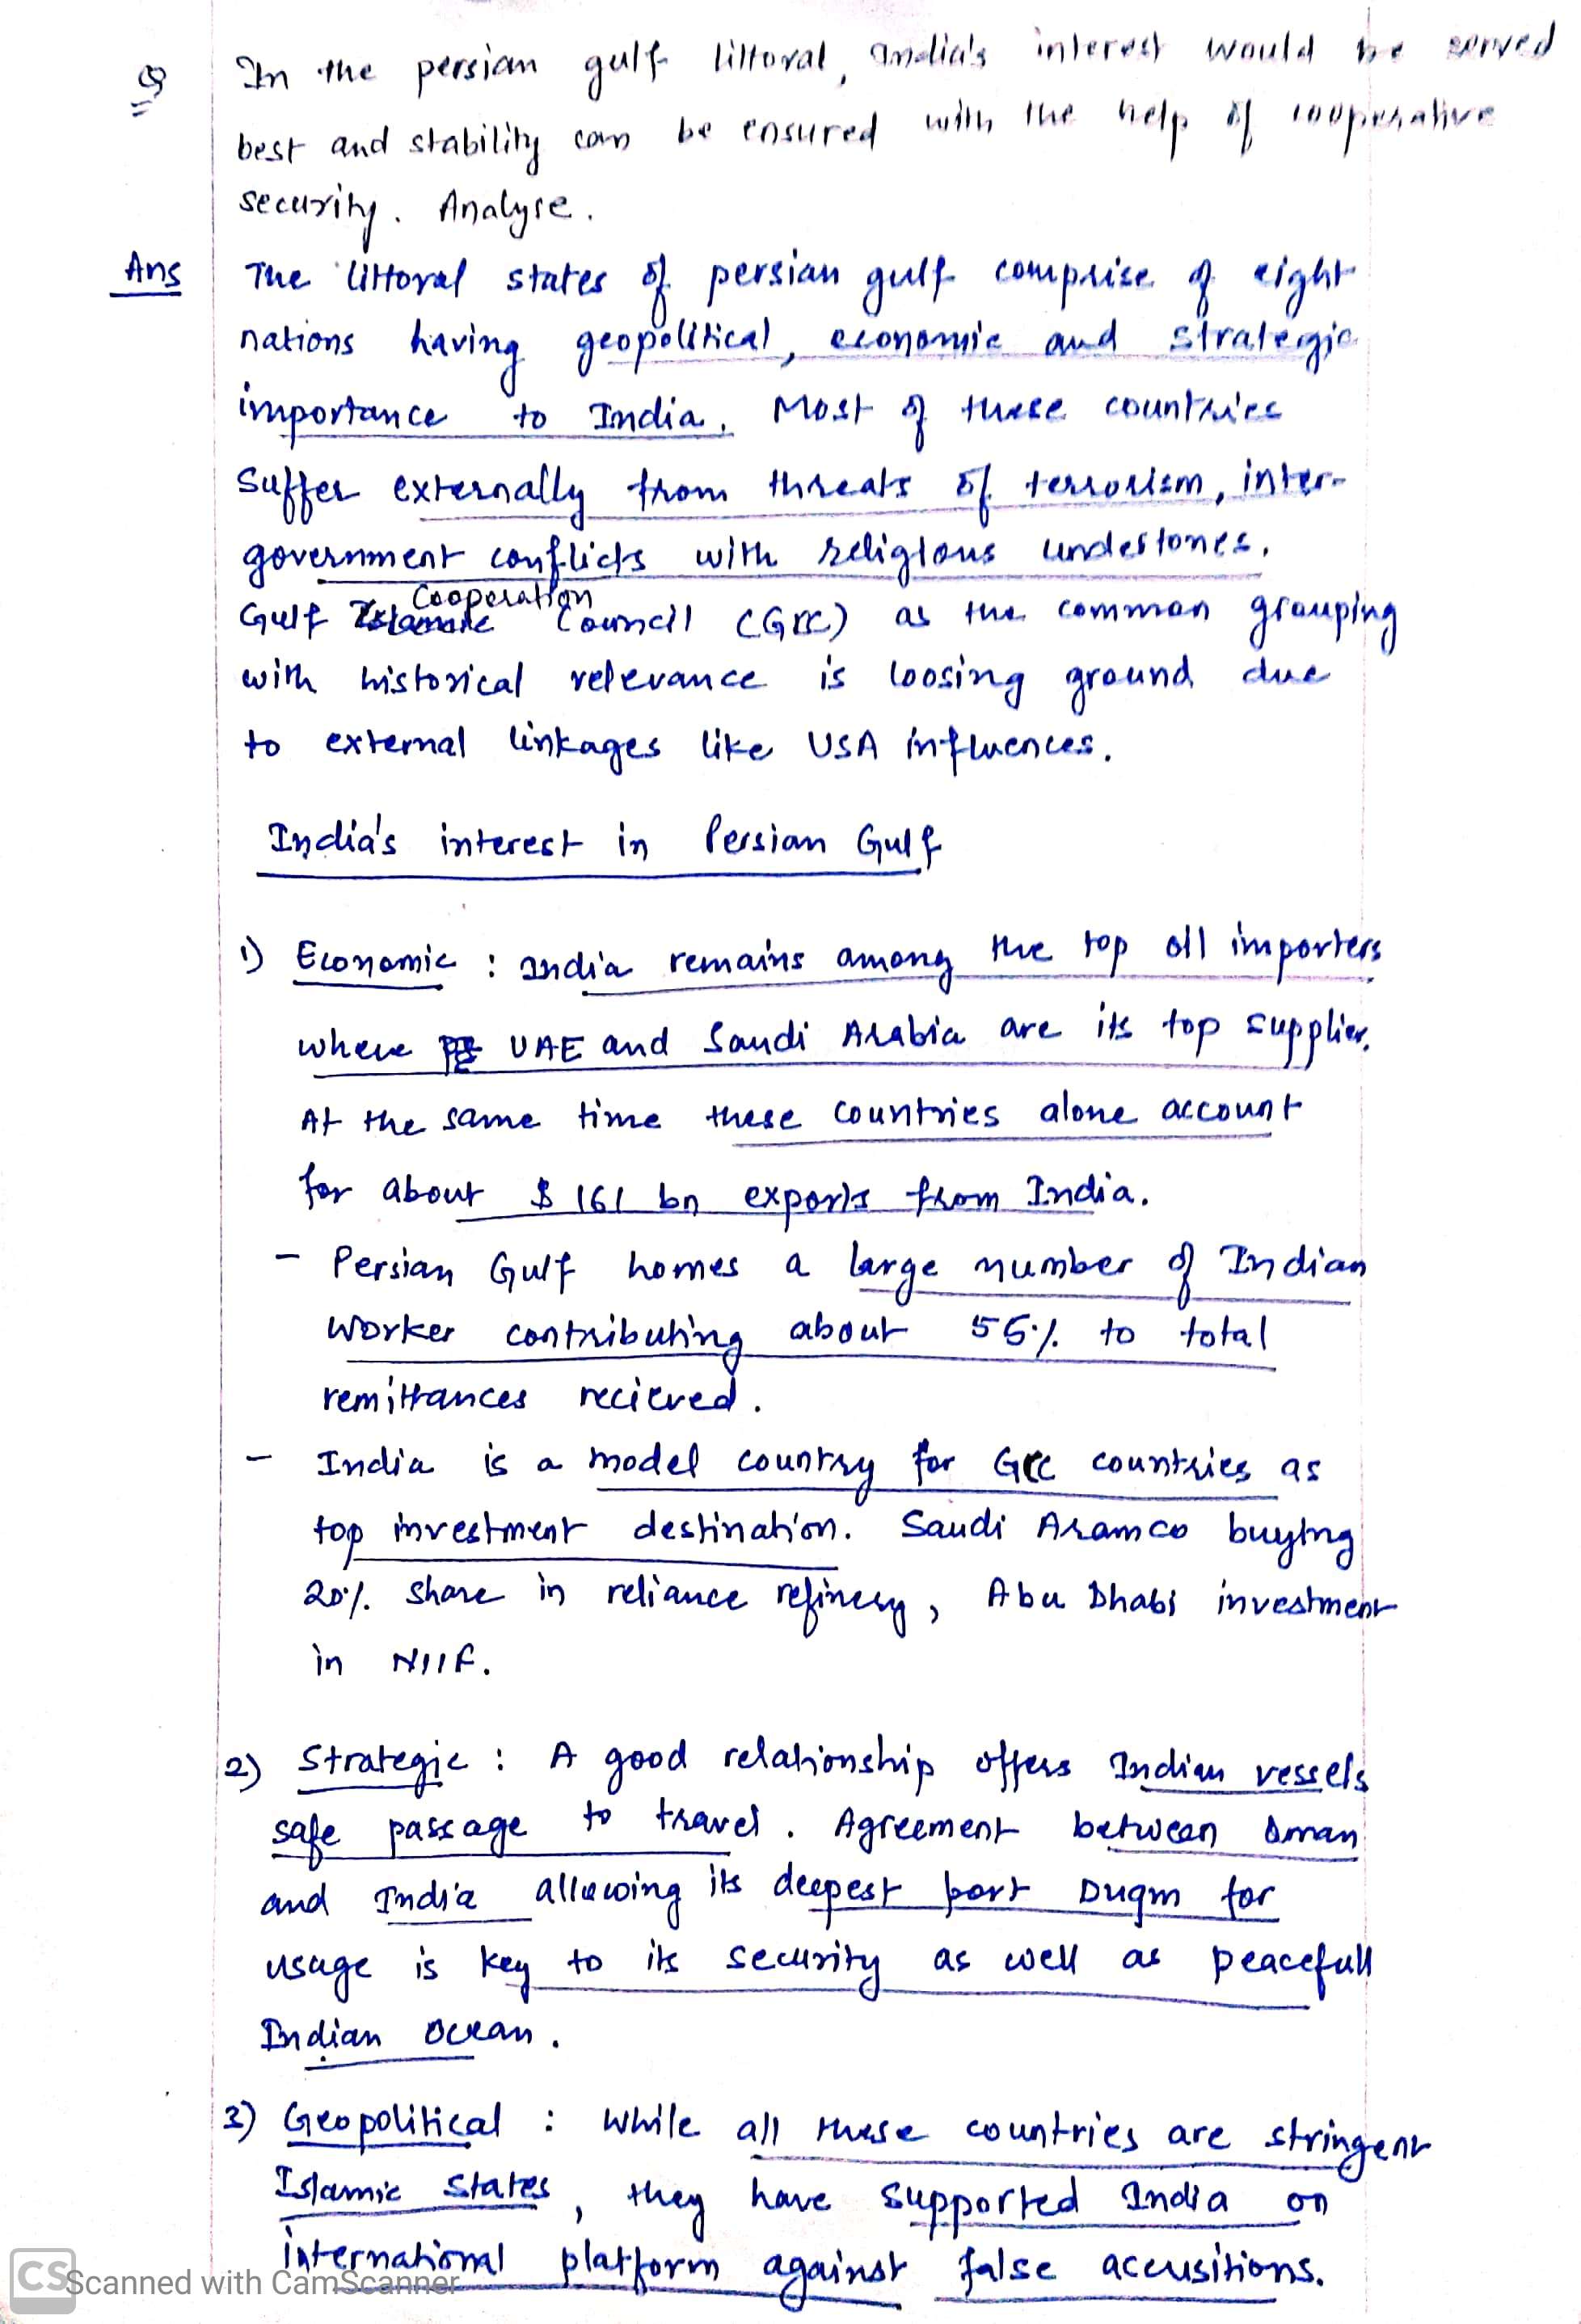 Q In the persian gulf littoral, India's interest would be served
best and stability can be ensured with the help of cooperative
security. Analyse.
Ans The littoral states of persian gulf comprise of eight
nations having geopolitical, economic and strategic
importance to India. Most of these countries
Suffer externally from threats of terrorism, inter-
government conflicts with religious undertones.
Gulf Cooperation Council (GCC) as the common grouping
with historical relevance is loosing ground due
to external linkages like USA influences.
India's interest in Persian Gulf
1) Economic : India remains among the top oil importers
where UAE and Saudi Arabia are its top supplier.
At the same time these countries alone account
for about $ 161 bn exports from India.
- Persian Gulf homes a large number of Indian
worker contributing about 55% to total
remittances recieved.
- India is a model country for GCC countries as
top investment destination. Saudi Aramco buying
20% share in reliance refinery, Abu Dhabi investment
in NIIF.
2) Strategic : A good relationship offers Indian vessels
safe passage to travel. Agreement between Oman
and India allowing its deepest port Duqm for
usage is key to its security as well as peacefull
Indian Ocean.
3) Geopolitical : While all these countries are stringent
Islamic States, they have supported India on
International platform against false accusitions.
CS Scanned with CamScanner